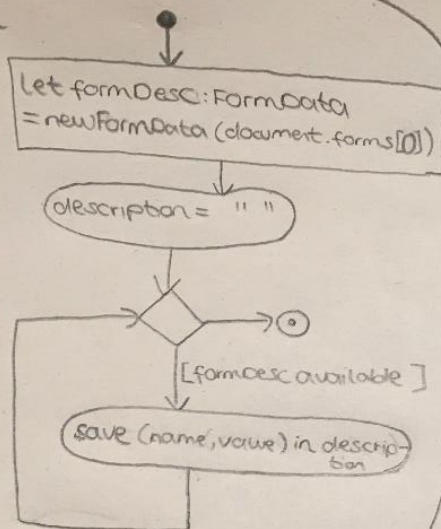 let formDesc: FormData
= newFormData (document.forms[0])
description = " "
[formDesc available]
save (name, value) in descrip-
tion